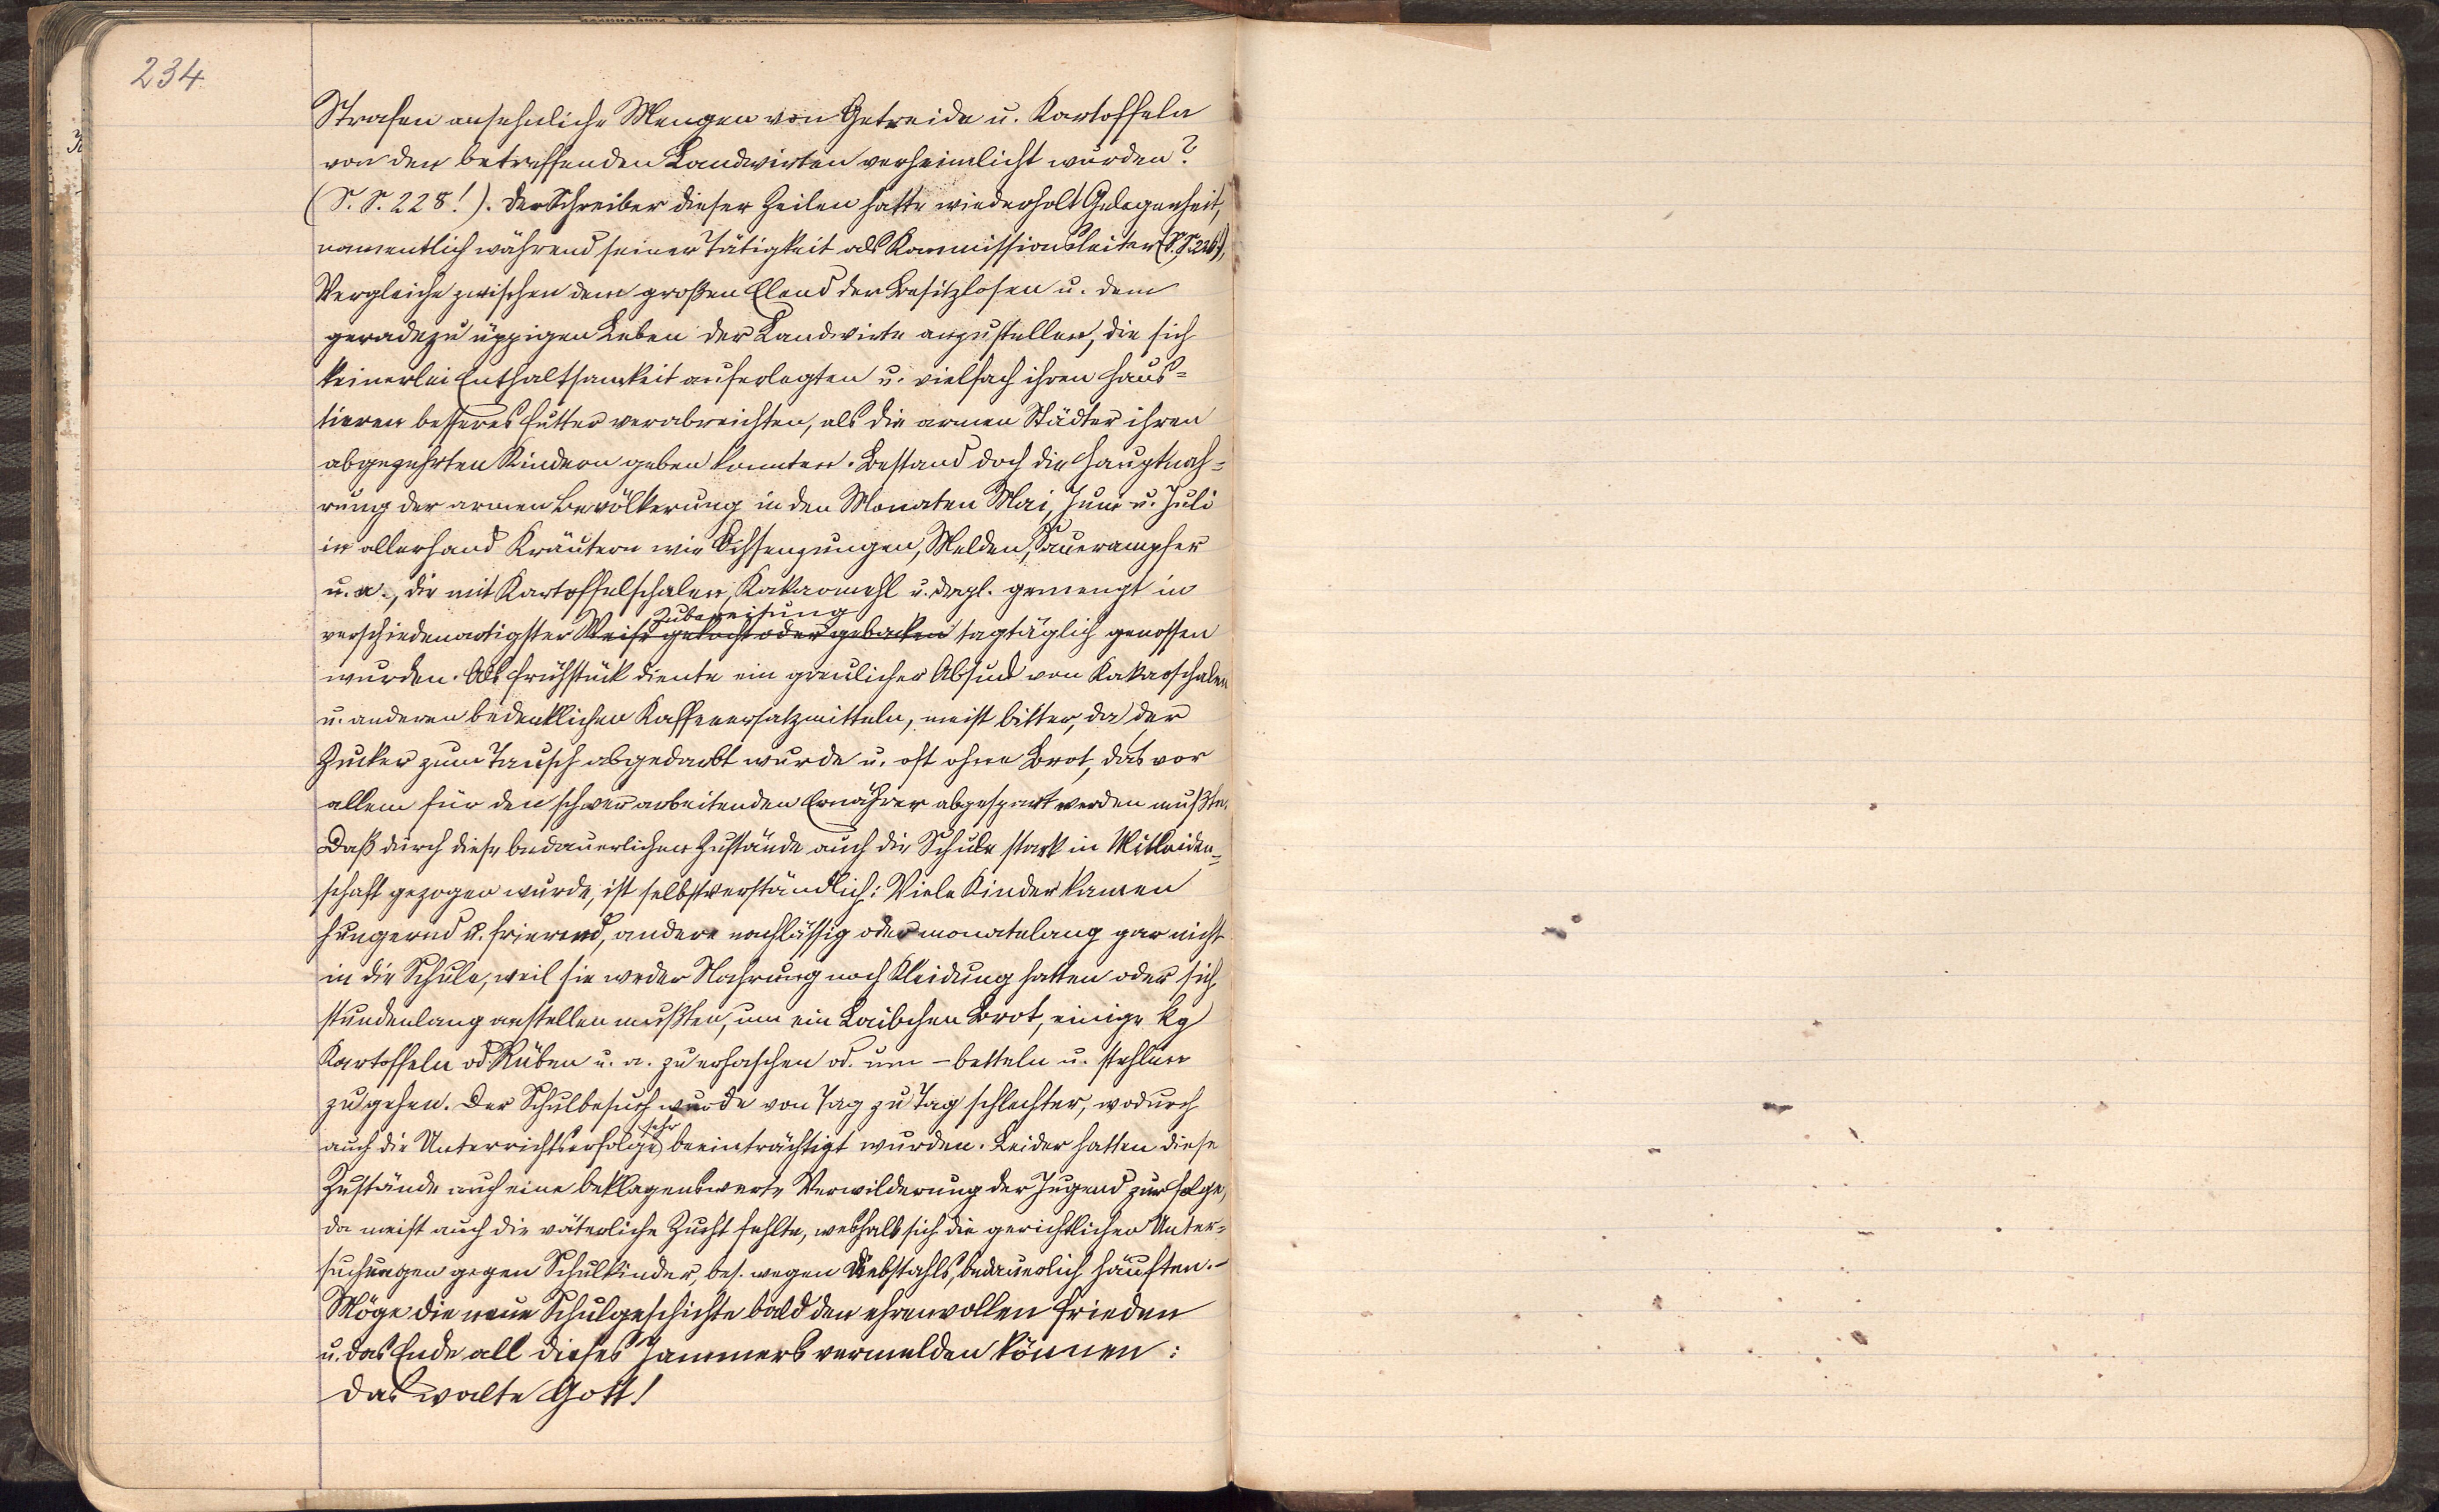 234
Strafen ansehnliche Mengen von Getreide u. Kartoffeln
von den betreffenden Landwirten verheimlicht wurden?
(S. S. 228!). Der Schreiber dieser Zeilen hatte wiederholt Gelegenheit,
namentlich während seiner Tätigkeit als Kommissionsleiter (S. S. 226!),
Vergleiche zwischen dem großen Elend der Besitzlosen u. dem
geradezu üppigen Leben der Landwirte anzustellen, die sich
keinerlei Enthaltsamkeit auferlegten u. vielfach ihren Haus=
tieren besseres Futter verabreichten, als die armen Städter ihren
abgezehrten Kindern geben konnten. Bestand doch die Hauptnah=
rung der armen Bevölkerung in den Monaten Mai, Juni u. Juli
in allerhand Kräutern wie Ochsenzungen, Melden, Sauerampfer
u. a., die mit Kartoffelschalen, Kakaomehl u. drgl. gemengt in
Zubereitung
verschiedenartigster Weise gekocht oder gebacken tagtäglich genossen
wurden. Als Frühstück diente ein greulicher Absud von Kakaoschalen
u. anderen bedenklichen Kaffeeersatzmitteln, meist bitter, da der
Zucker zum Tausch abgedarbt wurde u. oft ohne Brot, das vor
allem für den schwer arbeitenden Ernährer abgespart werden mußte.
Daß durch diese bedauerlichen Zustände auch die Schule stark in Mitleiden=
schaft gezogen wurde, ist selbstverständlich: Viele Kinder kamen
hungernd u. frierend, andere nachlässig oder monatelang gar nicht
in die Schule, weil sie weder Nahrung noch Kleidung hatten oder sich
stundenlang anstellen mußten, um ein Laibchen Brot, einige kg
Kartoffeln od. Rüben u. a. zu erhaschen od. um – betteln u. stehlen
zu gehen. Der Schulbesuch wurde von Tag zu Tag schlechter, wodurch
sehr
auch die Unterrichtserfolge beeinträchtigt wurden. Leider hatten diese
Zustände auch eine beklagenswerte Verwilderung der Jugend zur Folge,
da meist auch die väterliche Zucht fehlte, weshalb sich die gerichtlichen Unter=
suchungen gegen Schulkinder, bes. wegen Diebstahls, bedauerlich häuften. –
Möge die neue Schulgeschichte bald den ehrenvollen Frieden
u. das Ende all dieses Jammers vermelden können:
Das walte Gott!